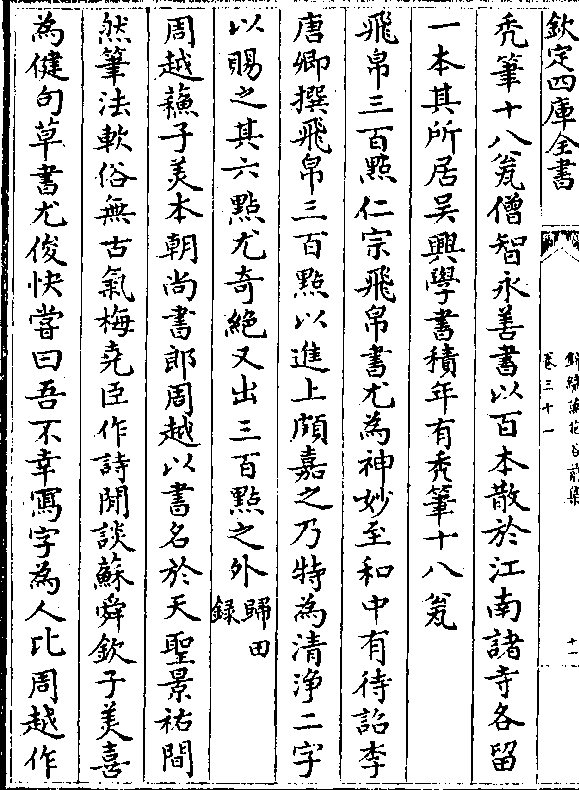 欽定四庫全書
卷三十一
十一
禿筆十八瓮僧智永善書以百本散於江南諸寺各留
一本其所居吴興學書積年有秃筆十八瓮
飛帛三百㸃仁宗飛帛書尤為神妙至和中有待詔李
唐卿撰飛帛三百㸃以進上頗嘉之乃特為清浄二字
以賜之其六㸃尤奇絶又出三百㸃之外歸田録
周越蘓子美本朝尚書郎周越以書名於天聖景祐間
然筆法軟俗無古氣梅堯臣作詩閒談蘇舜欽子美喜
為健句草書尤俊快嘗曰吾不幸寫字為人比周越作